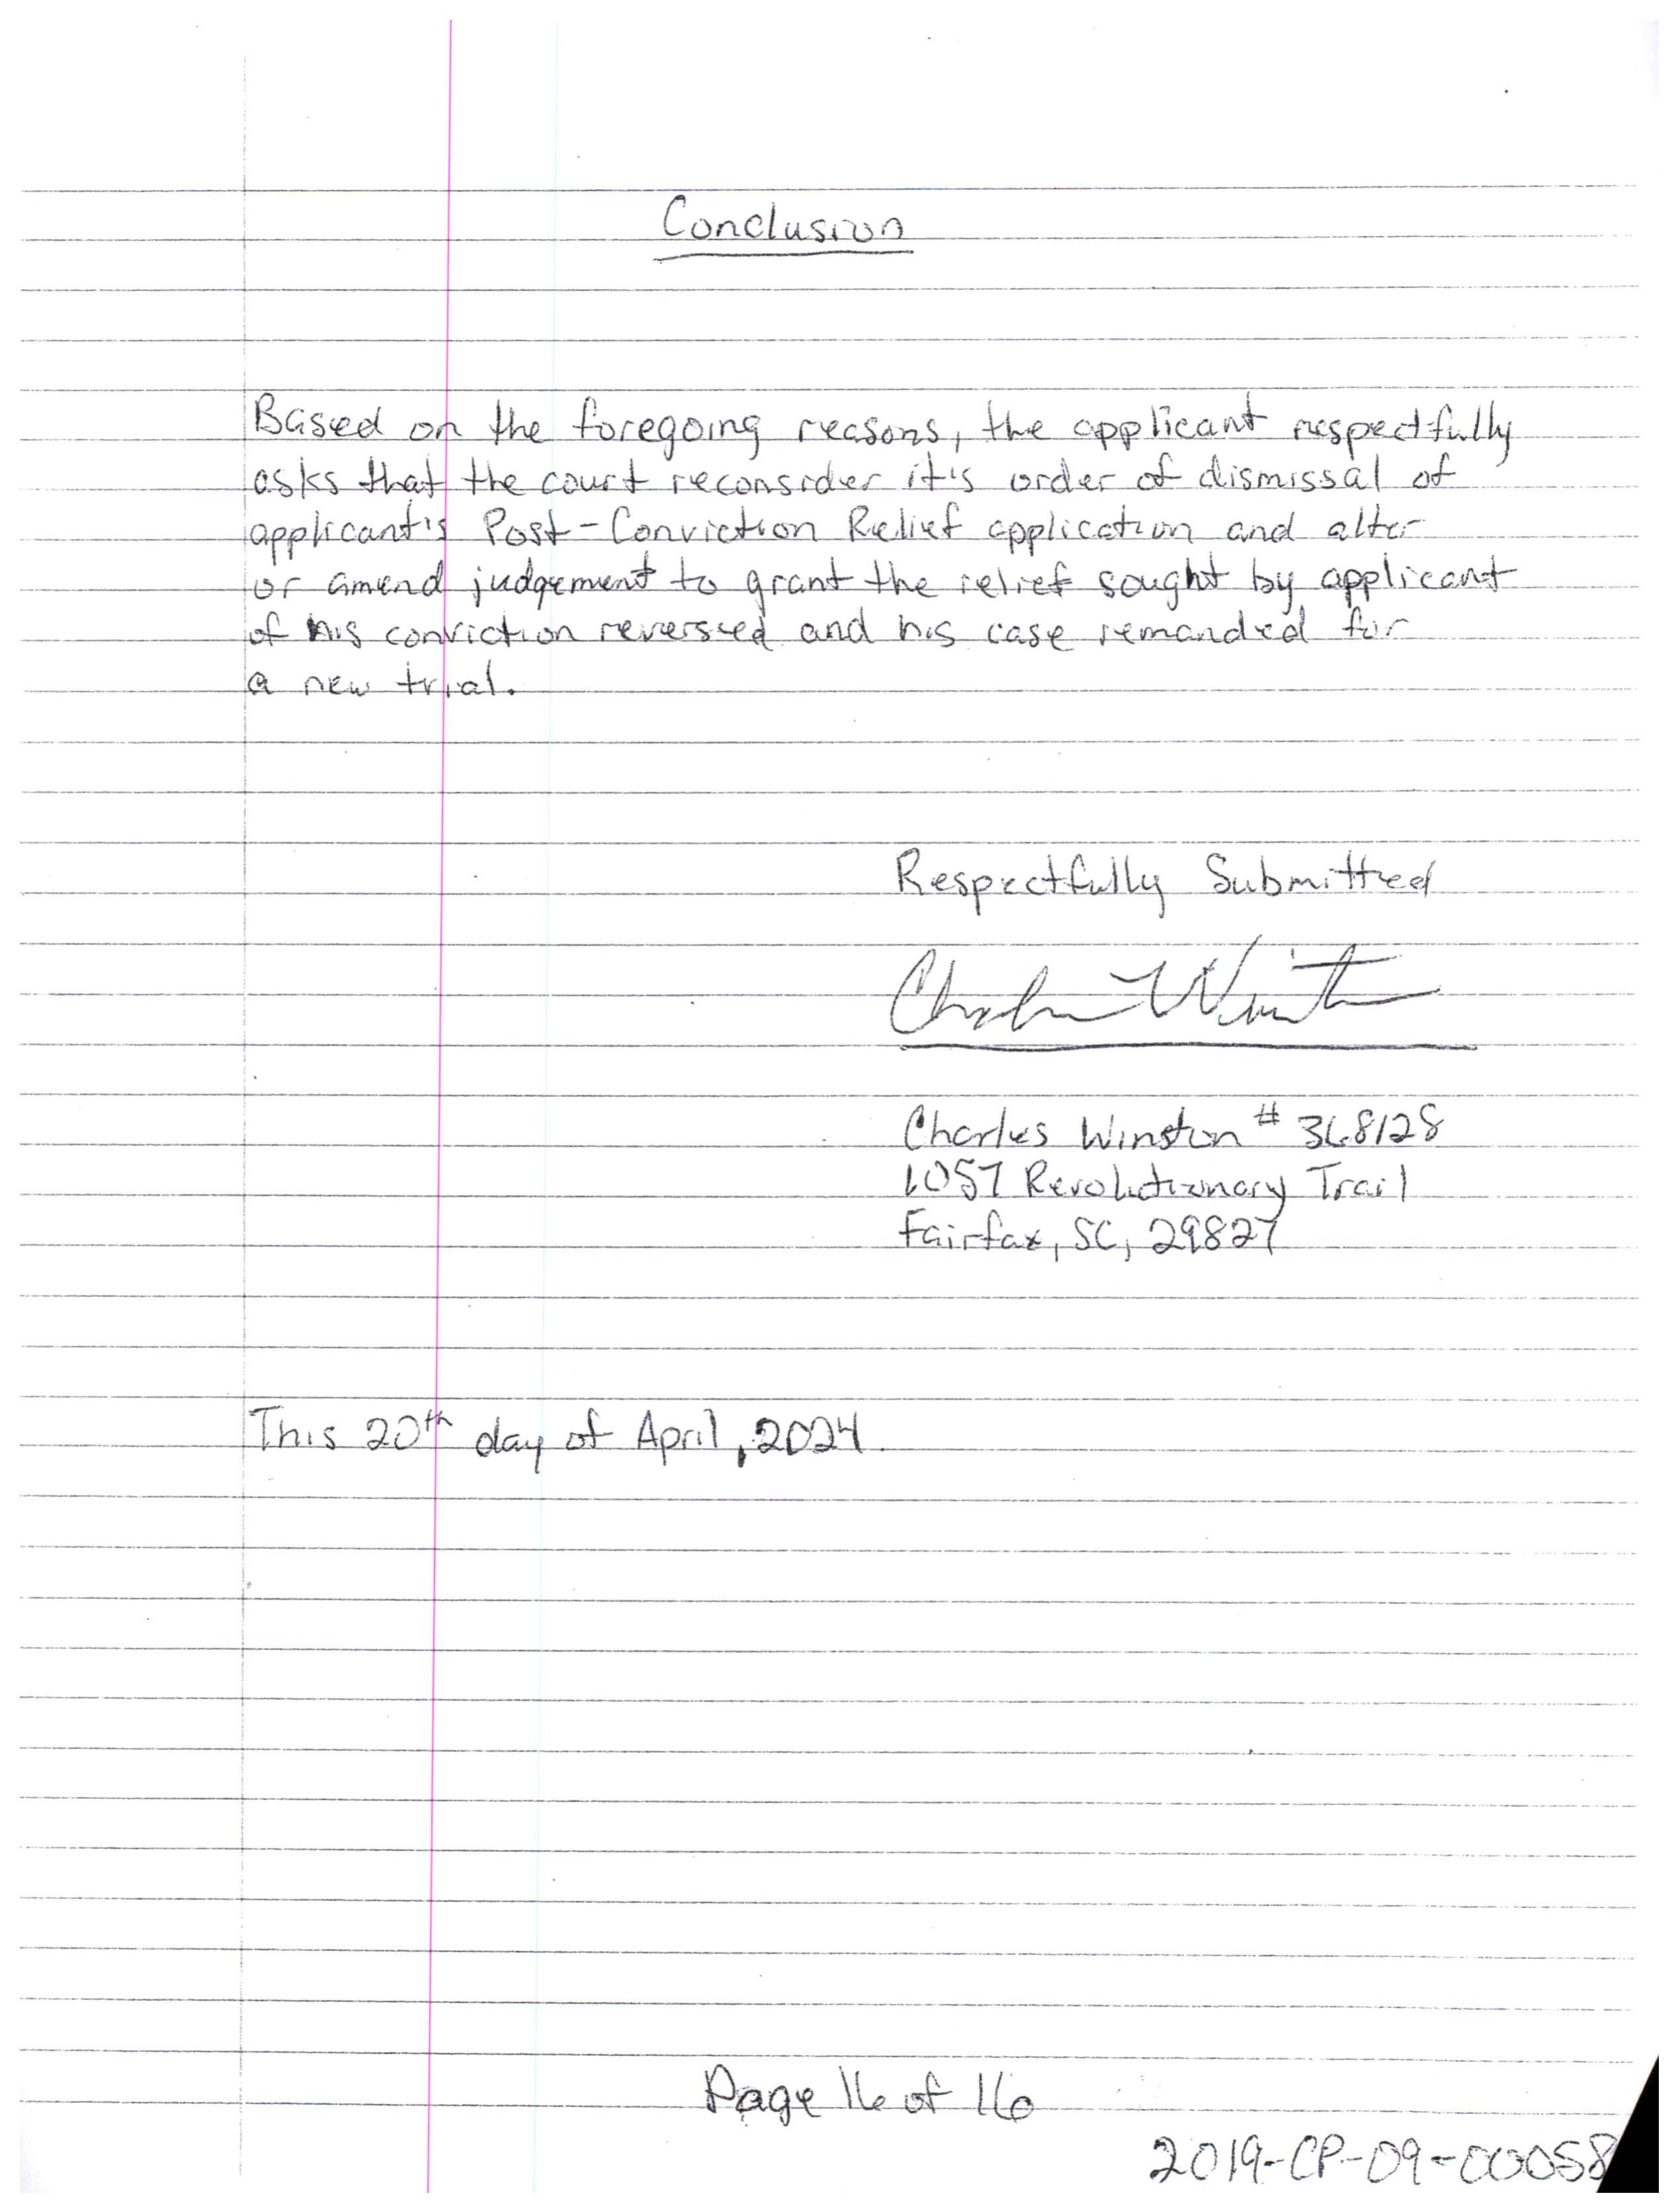 Conclusion
Based on the foregoing reasons, the applicant respectfully
asks that the court reconsider it's order of dismissal of
applicant's Post-Conviction Relief application and alter
or amend judgement to grant the relief sought by applicant
of his conviction reversed and his case remanded for
a new trial.
Respectfully Submitted
Charles Winston
Charles Winston # 368128
1057 Revolutionary Trail
Fairfax, SC, 29827
This 20th day of April, 2024.
Page 16 of 16
2019-CP-09-00058